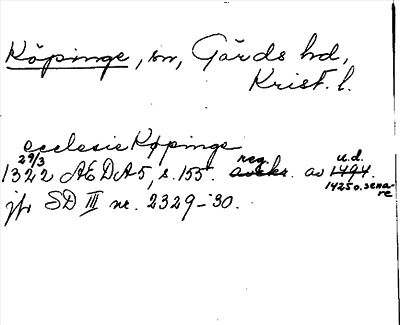 Köpinge, sn, Gärds hd,
Krist. l.
ecclesie Køpinge
29/3
1322 AEDA 5, s. 155. reg avskr. av 1494. u.d.
1425 o. sena-
re
jfr SD III nr. 2329-30.